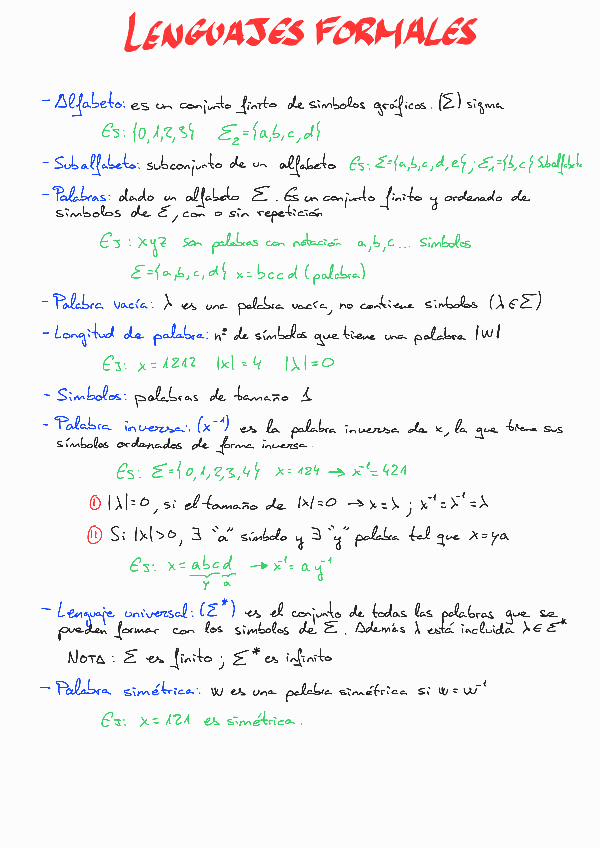 LENGUAJES FORMALES
- Alfabeto: es un conjunto finito de simbolos gráficos. (Σ) sigma
Ej: {0,1,2,3} Σ₂={a,b,c,d}
- Subalfabeto: subconjunto de un alfabeto Ej: Σ={a,b,c,d,e}; Σ₁={b,c} Subalfabeto
- Palabras: dado un alfabeto Σ. Es un conjunto finito y ordenado de
simbolos de Σ, con o sin repetición
Ej: xyz son palabras con notación a,b,c... simbolos
Σ={a,b,c,d} x=bccd (palabra)
- Palabra vacía: λ es una palabra vacía, no contiene simbolos (λ∈Σ)
- Longitud de palabra: nº de símbolos que tiene una palabra |W|
Ej: x=1212 |x|=4 |λ|=0
- Simbolos: palabras de tamaño 1
- Palabra inversa: (x⁻¹) es la palabra inversa de x, la que tiene sus
símbolos ordenados de forma inversa.
Ej: Σ={0,1,2,3,4} x=124 → x⁻¹=421
I |λ|=0, si el tamaño de |x|=0 → x=λ ; x⁻¹=λ⁻¹=λ
II Si |x|>0, ∃ "a" símbolo y ∃ "y" palabra tal que x=ya
Ej: x=abcd → x⁻¹=ay⁻¹
y a
- Lenguaje universal: (Σ*) es el conjunto de todas las palabras que se
pueden formar con los simbolos de Σ. Además λ está incluida λ∈Σ*
NOTA: Σ es finito ; Σ* es infinito
- Palabra simétrica: w es una palabra simétrica si w=w⁻¹
Ej: x=121 es simétrica.